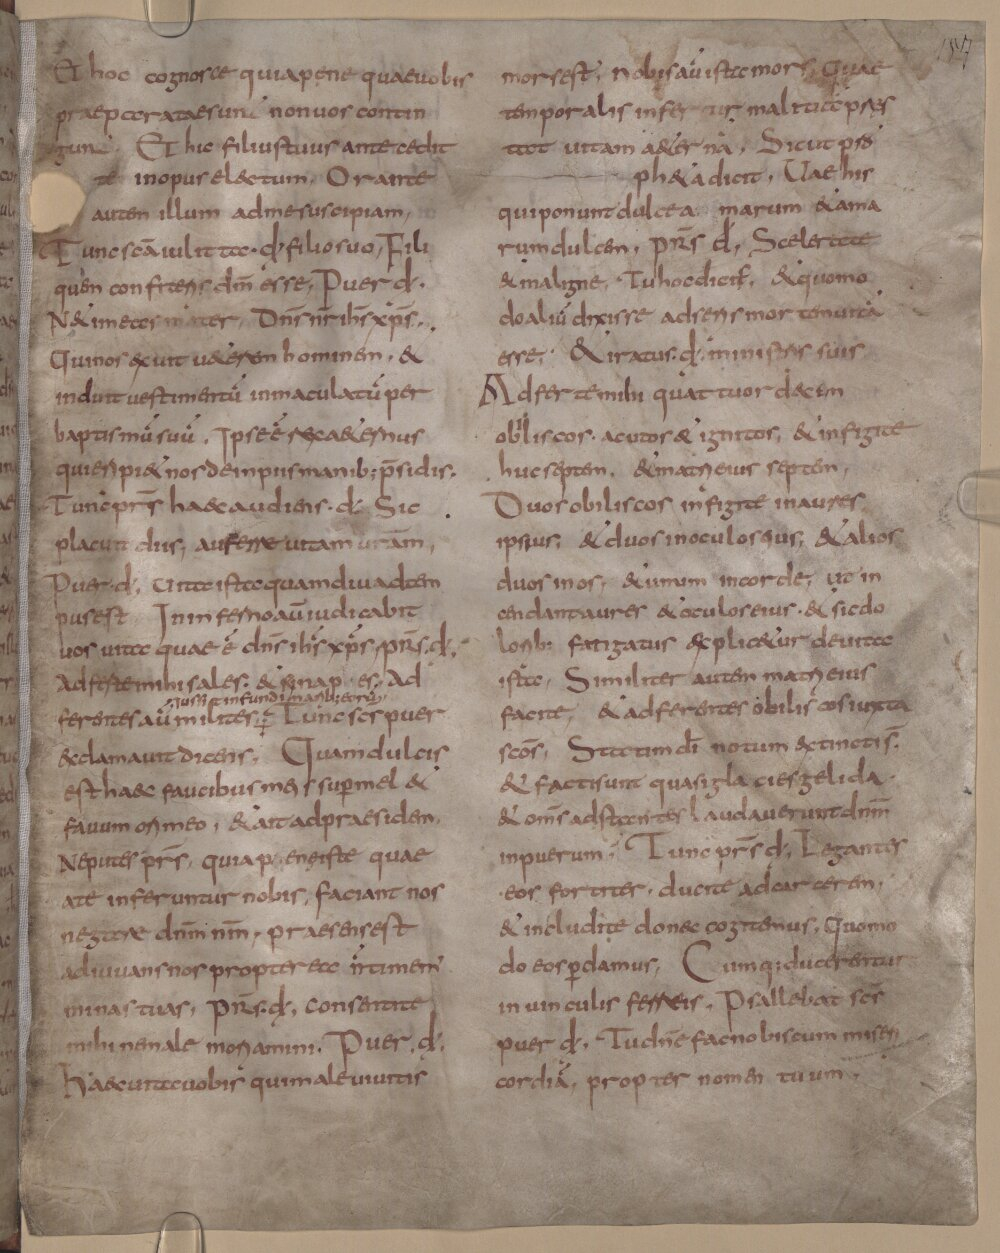 Et hoc cognosce quia pene quae vobis
praeparatae sunt non vos contin
gunt. Et hic filius tuus antecedit
te in opus electum. Orante
autem illum ad me suscipiam,
Tunc scā iulitta · d̄ · filio suo, Fili
quem confiteris dn̄m esse, Puer d̄.
N& ime&as mater, Dn̄s nr̄ ih̄s xp̄s,
Qui nos exuit u&erem hominem, &
induit vestimentū inmaculatū per
baptismū suū, Ipse ē rex a&ernus
qui eripi& nos de inpiis manib; p̄sidis.
Tunc prs̄ haec audiens · d̄ · Sic
placuit diis, auferre vitam vr̄am,
Puer · d̄, Vita ista quam diu ad tem
pus est. In inferno aū iudicabit
vos vita quae ē dn̄s ih̄s xp̄s, prs̄ · d̄,
Adferte mihi sales · & sinapes, Ad
iussit infundi in narib; eorū
ferentes aū milites, Tunc scs puer
exclamavit dicens, Quam dulcis
est haec faucibus meis super mel &
favum ori meo, & ait ad praesidem,
Ne putes prs̄, quia p enaiste quae
a te inferuntur nobis, faciant nos
negare dn̄m nr̄m, praesens est
adiuvans nos propterea n̄ timem
minas tuas, prs̄ · d̄, consentite
mihi ne male moriamini. Puer · d̄.
Haec vita vobis qui male vivitis
mors est, nobis aū ista mors, Quae
temporalis infertur malitia p̄s
tat vitam a&ernā, Sicut
ph&a dicit, Vae his
qui ponunt dulce amarum & ama
rum dulcem, prs̄ d̄, Scelerate
& maligne, Tu hoc dicis, & quomo
do aliū dixisse adseris mortem vitā
esse; & iratus · d̄ · ministris suis
Adferte mihi quattuordecim
obiliscos · acutos & ignitos, & infigite
huc septem, & matri eius septem,
Duos obiliscos infigite in aures
ipsius, & duos in oculos eius, & alios
duos in os, & unum in corde, ut in
cendant aures & oculos eius · & sic do
lorib; fatigatus explic&ur de vita
ista, Similiter autem matri eius
facite, & adferentes obiliscos iuxta
scōs, Statim dī notum extinctis.
& facti sunt quasi glacies gelida.
& omn̄s adstantes laudaverunt dn̄m
in puerum, Tunc prs̄ d̄, Legantes
eos fortiter, ducite ad carcerem,
& includite donec cogitemus, Quomo
do eos p̄damus, Cumq; ducerentur
in vinculis ferreis, Psallebat scs
puer d̄, Tu dn̄e fac nobiscum miseri
cordiā, propter nomen tuum.